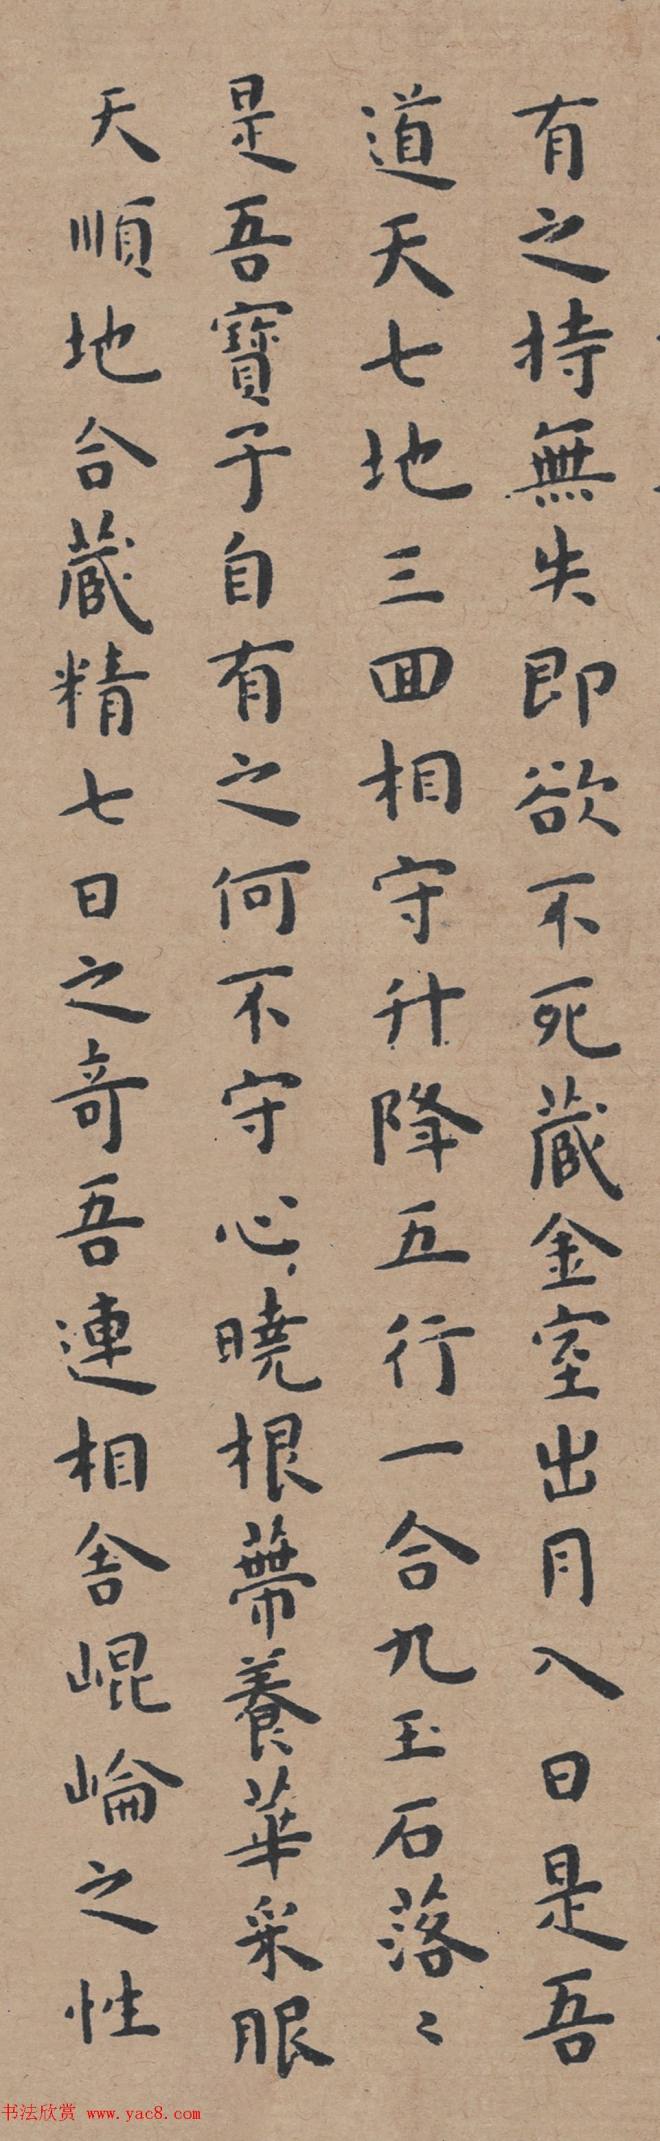 有之持無失即欲不死藏金室出月入日是吾
道天七地三回相守升降五行一合九玉石落〻
是吾寶子自有之何不守心曉根蔕養華采服
天順地合藏精七日之奇吾連相舍崐崘之性
书法欣赏 www.yac8.com